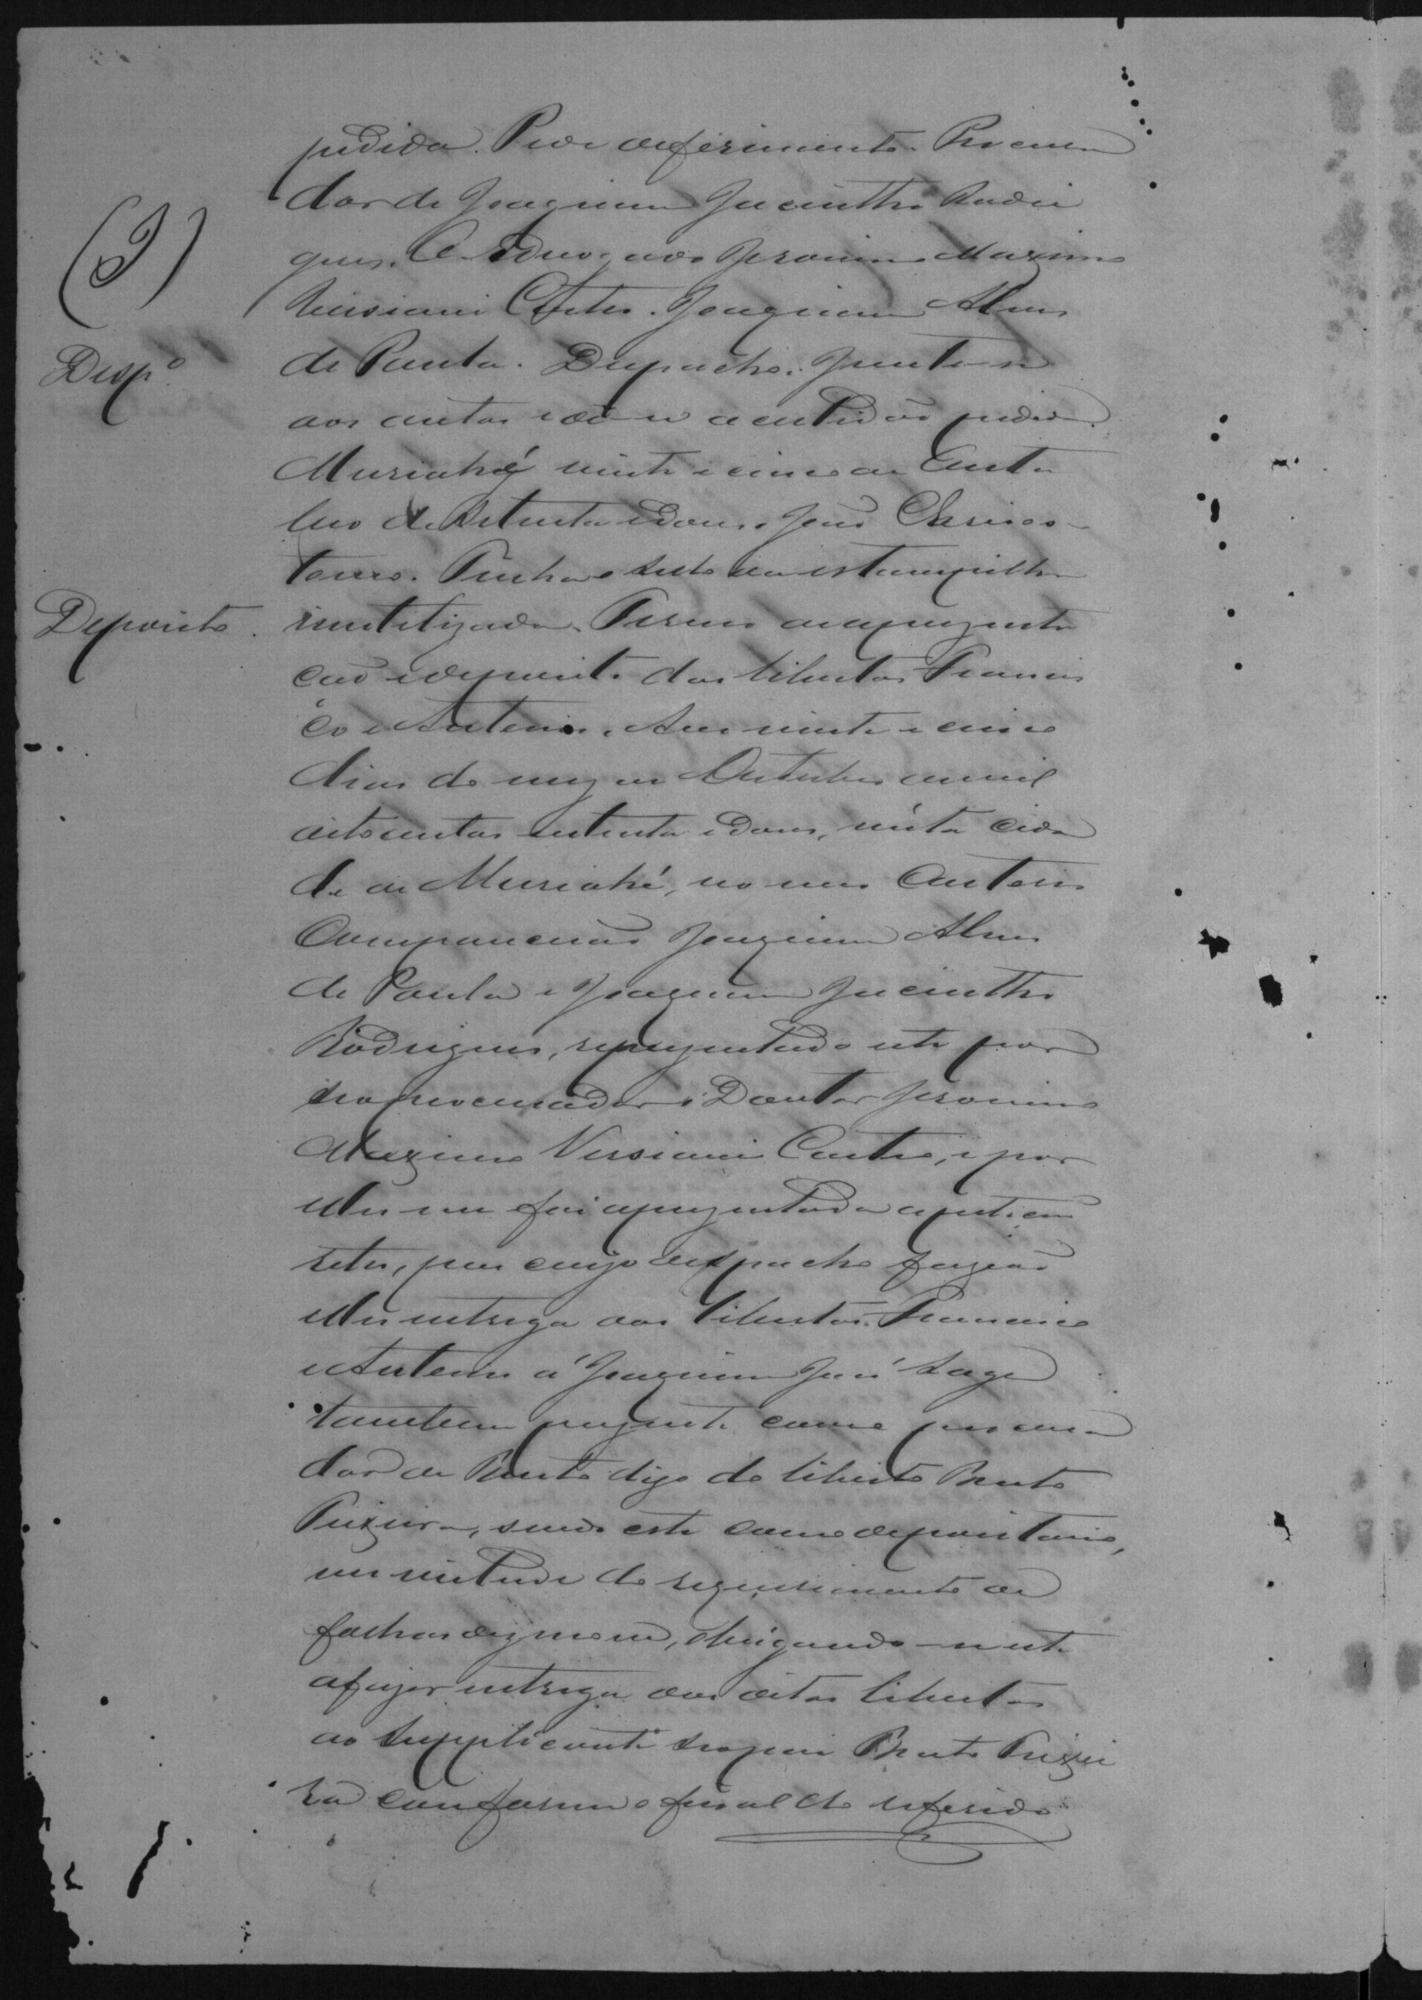 pedida. Pede deferimento. Procura
dor de Joaquim Jacintho Rodri
gues. O Advogado Jeronimo Maximo
(J)
Versiani Castro. Joaquim Alves
Desp.º
de Paula. Despacho. Junte-se
aos autos e dê-se a certidão pedida.
Muriahé vinte e cinco de Outu
bro de setenta e dous. José Chrisos-
tomo. Tinha o sello da estampilha
Deposito.
inutilizada. Termo de apresenta
ção e deposito dos libertos Francis
co e Antonio. Aos vinte e cinco
dias do mez de Outubro de mil
oitocentos setenta e dous, nésta cida
de de Muriahé, no meu Cartorio
Compareceu Joaquim Alves
de Paula e Joaquim Jacintho
Rodrigues, representado este por
seo procurador o Doutor Jeronimo
Maximo Versiani Castro, e por
elles me foi apresentada a petição
retro, por cujo despacho fazião
elles entrega dos libertos Francisco
e Antonio á Joaquim José Lage
tambem presente como procura
dor de Bento digo do liberto Bento
Teixeira, sendo este como depositario,
em virtude do requerimento de
folhas dezenove, obrigando-se este
a fazer entrega dos ditos libertos
ao Supplicante seo pai Bento Teixei
ra conforme o final do referido